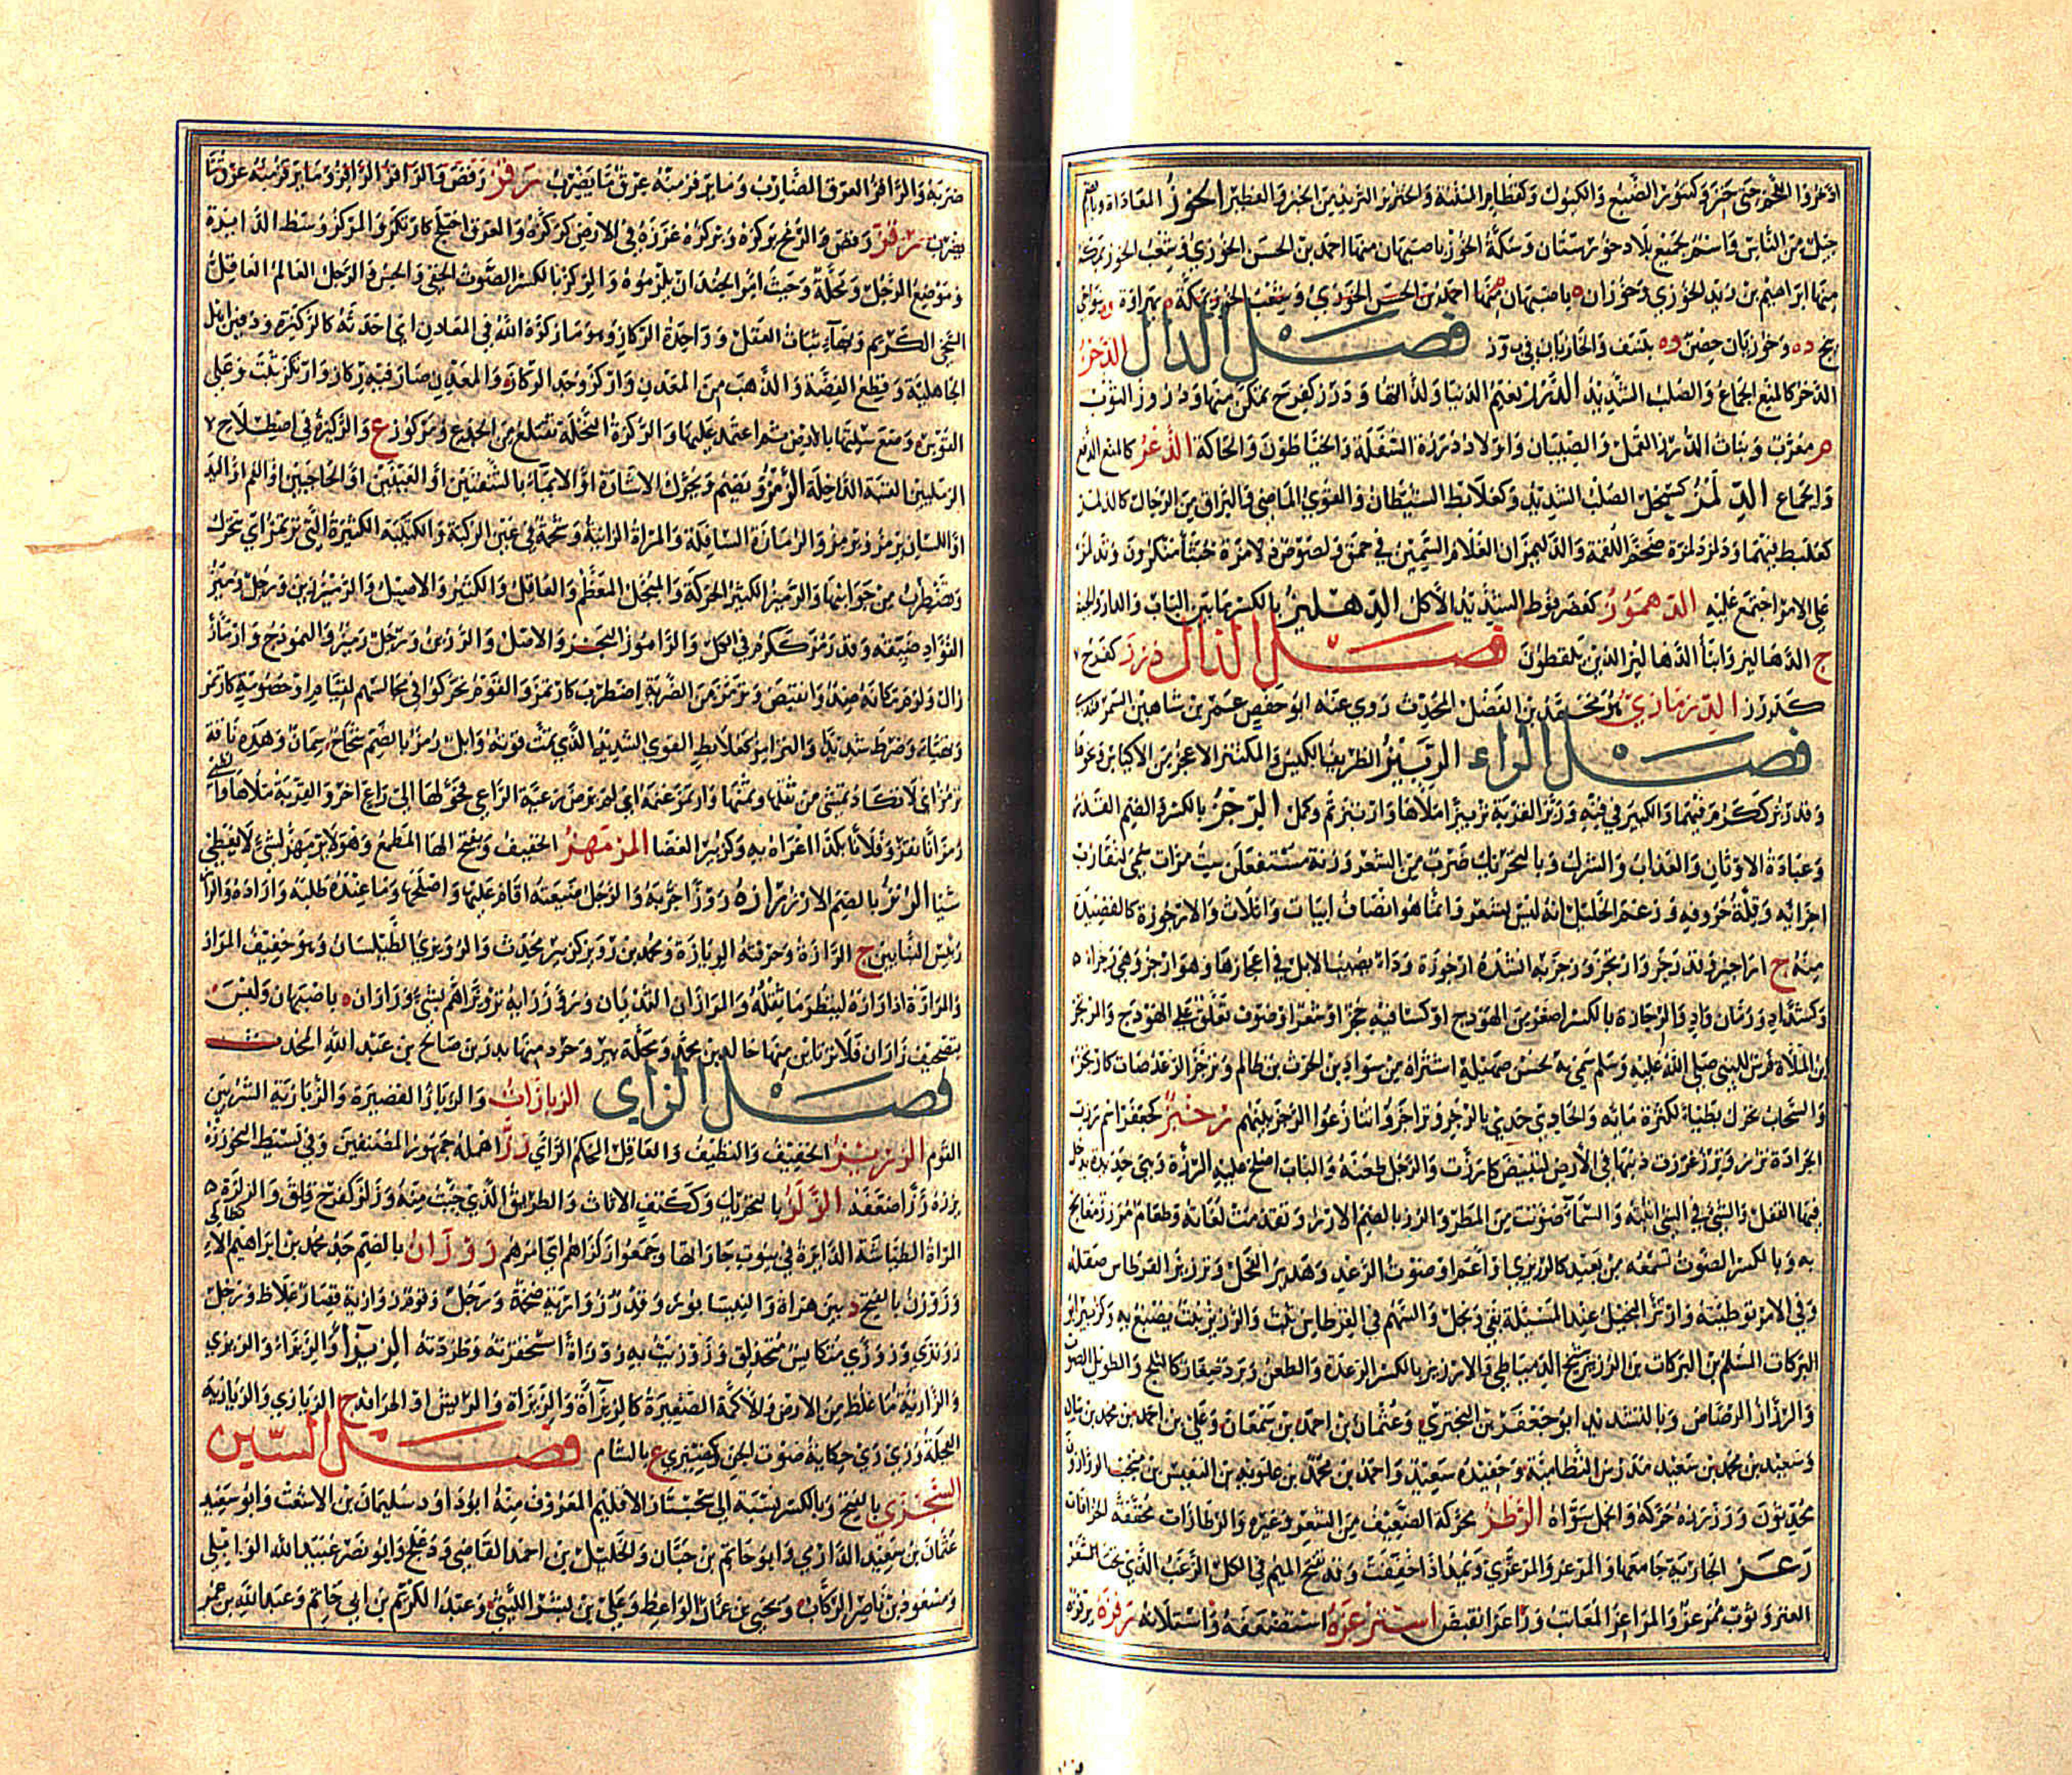 جيل من الناس واسم لجميع بلاد خوزستان وسكة الخوز باصبهان منها احمد بن الحسن الخوزي وشعب الخوز بمكة
منها ابراهيم بن يزيد الخوزي وخوزان ه باصبهان منها احمد بن الحسن الخوزي وشعب الخوز بمكة ه بهراة وه بنواحي
وخوزيان حصن وه بنسف والخازباز في ب و ز فصل الدال الدخز
الدخز كالمنع الجماع والصلب الشديد الدرز نعيم الدنيا ولذاتها ودرز كفرح تمكن منها ودروز الثوب
م معرب وبنات الدروز القمل والصيبان واولاد درزة السفلة والخياطون والحاكة الدعز كالمنع الدفع
والجماع الدلمز كسبحل الصلب الشديد وكعلابط الشيطان والقوي الماضي والبراق من الرجال كالدلمز
كعلبط فيهما ودلمز دلمزة ضخم اللقمة والدليمزان الغلام السمين في حمق ولصوص دلامزة خبثاء منكرون وتدلمز
على الامر اجتمع عليه الدهموز كعضرفوط الشديد الأكل الدهليز بالكسر ما بين الباب والدار والحنية
ج الدهاليز وابناء الدهاليز الذين يلقطون فصل الذال ذرز كفرح
كدرز الذرمازي محمد بن الفضل المحدث روى عنه ابو حفص عمر بن شاهين السمرقندي
فصل الراء الربيز الظريف الكيس والمكتنز الاعجز من الاكياش ونحوها
وقد ربز ككرم فيهما والكبير في فنه وربز القربة تربيزا املاها وارتبز تم وكمل الرجز بالكسر والضم القذر
وعبادة الاوثان والعذاب والشرك وبالتحريك ضرب من الشعر وزنه مستفعلن ست مرات سمي لتقارب
اجزائه وقلة حروفه وزعم الخليل انه ليس بشعر وانما هو انصاف ابيات واثلاث والارجوزة كالقصيدة
منه ج اراجيز وقد رجز وارتجز ورجز به انشده ارجوزة وداء يصيب الابل في اعجازها وهو ارجز وهي رجزاء
وكشداد ورمان واد والرجازة بالكسر اصغر من الهودج او كساء فيه حجر او شعر او صوف تعلق على الهودج والمرتجز
بن الملاة فرس للنبي صلى الله عليه وسلم سمي به لحسن صهيله اشتراه من سواد بن الحرث بن ظالم وترجز الرعد صات كارتجز
والسحاب تحرك بطيئا لكثرة مائه والحادي حدا بالرجز وتراجزوا تنازعوا الرجز بينهم رخبز كجعفر اسم رزت
الجرادة ترز وترز غرزت ذنبها في الارض لتبيض كارزت والرجل طعنه والباب اصلح عليه الرزة وهي حديدة يدخل
فيها القفل والشيء في الشيء اثبته والسماء صوتت من المطر والرز بالضم الارز وتقدمت لغاته وطعام مرزز معالج
به وبالكسر الصوت تسمعه من بعيد كالرزيزي او اعم او صوت الرعد وهدير الفحل وترزيز القرطاس صقله
وفي الامر توطيئه وارتز البخيل عند المسئلة بقي وبخل والسهم في القرطاس ثبت والرزيز نبت يصبغ به وكزبير ابو
البركات المسلم بن البركات بن الرزيز شيخ الدمياطي والارزيز بالكسر الرعدة والطعن وبرد صغار كالثلج والطويل الصوت
والرزاز الرصاص وبالتشديد ابو جعفر بن البختري وعثمان بن احمد بن سمعان وعلي بن احمد بن محمد بن بيان
وسعيد بن محمد بن سعيد مدرس النظامية وحفيده سعيد واحمد بن محمد بن علويه بن النفيس بن منجب الرزازون
محدثون ورززه حركه والحمل سواه الرطز محركة الضعيف من الشعر وغيره والرطازات مخففة الخرافات
رعز الجارية جامعها والمرعز والمرعزي ويمد اذا خففت وقد تفتح الميم في الكل الزغب الذي تحت شعر
العنز وثوب ممرعز والمراعز المعاب وراعز انقبض استرغزه استضعفه واستلانه رفزه يرفزه
ضربه والرافز العرق الضارب وما يرفز منه عرق ما يضرب رفز رقص والرافز الراقز وما يرقز منه عرق ما
يضرب رقز رقص والرمح يركزه ويركزه غرزه في الارض كركزه والعرق اختلج كارتكز والمركز وسط الدائرة
وموضع الرجل ومحلة وحيث امر الجند ان يلزموه والركز بالكسر الصوت الخفي والحس والرجل العالم العاقل
السخي الكريم وبهاء ثبات العقل وواحدة الركاز وهو ما ركزه الله في المعادن اي احدثه كالركيزة ودفين اهل
الجاهلية وقطع الفضة والذهب من المعدن واركز وجد الركاز والمعدن صار فيه ركاز وارتكز ثبت وعلى
القوس وضع سيتها بالارض ثم اعتمد عليها والركزة النخلة تقتلع من الجذع ومركوز ع والركيزة في اصطلاح
الرمليين العتبة الداخلة الرمز ويضم ويحرك الاشارة او الايماء بالشفتين او العينين او الحاجبين او الفم او اليد
او اللسان يرمز ويرمز والرمازة السافلة والمراة الزانية وشحمة في عين الركبة والكتيبة الكثيرة التي ترتمز اي تحرك
وتضطرب من جوانبها والرميز الكثير الحركة والمبجل المعظم والعاقل والكثير والاصيل والرزين ورجل رميز
الفؤاد ضيقه وقد رمز ككرم في الكل والراموز البحر والاصل والنموذج وارماز
زال ولزم مكانه ضد وانقبض وترمز من الضربة اضطرب كارتمز والقوم تحركوا في مجالسهم لقيام او خصومة كارتمز
وتهيأ وضرط شديدا والترامز كعلابط القوي الشديد الذي تمت قوته وابل رمز بالضم سمان وهذه ناقة
ترمز اي لا تكاد تمشي من ثقلها وسمنها وارتمز عنه اي لم يرض رعية الراعي فحولها الى راع اخر والقربة ملأها
رمزا نا نقز وفلانا بكذا اغراه به وكزبير العصا المرمهز الخفيف وبفتح الهاء المطمع وهو لا يرمهز لشيء لا يعطي
شيئا الرنز بالضم الارز رازه روزا جربه والرجل ضيعته اقام عليها واصلحها وما عنده طلبه واراده والراز
رئيس البنايين ج الرازة وحرفته الريازة ومحمد بن رويز كزبير محدث والرويزي الطيلسان وهو خفيف المراز
والمرازة اذا وازه لينظر ما ثقله والمرازان الثديان ورازان ه باصبهان وليس
بتصحيف زاذان منها خالد بن محمد ومحلة ببروجرد منها بدر بن صالح بن عبد الله المحدث
فصل الزاي الزبازاة والزباز القصيرة والزبازية الشر بين
القوم الزبزيز الخفيف والنظيف والعاقل المحكم الراي زز اهمله جمهور المصنفين وفي بسيط النحو
ززه ززا صفعه الزلز بالتحريك وككتف الاثاث والطريق الذي جئت منه وزلز كفرح قلق والزلزة
المراة الطياشة الدائرة في بيوت جاراتها وجمعوا زلزاهم اي امرهم زوزان بالضم جد محمد بن ابراهيم
وزوزن بالفتح د بين هراة والنيسابور وقدر زوازية ضخمة ورجل وقوم زوازية قصار غلاظ ورجل
زونزي وزوزى متكايس متحذلق وزوزيت به زوزاة استحقرته وطردته الزيزاء والزيزاء والزيزى
والزازية ما غلظ من الارض والاكمة الصغيرة كالزيزاءة والزيزاة والريش او اطرافه ج الزيازي والزيازية
العجلة وزي زي حكاية صوت الجن وكضيزى ع بالشام فصل السين
السجزي بالفتح وبالكسر نسبة الى سجستان الاقليم المعروف منه ابو داود سليمان بن الاشعث وابو سعيد
عثمان بن سعيد الدارمي وابو حاتم بن حبان والخليل بن احمد القاضي ودعلج وابو نصر عبيد الله الوايلي
ومسعود بن ناصر الركاب ويحيى بن عمار الواعظ وعلي بن بشر الليثي وعبد الكريم بن ابي حاتم وعبد الله بن عمر